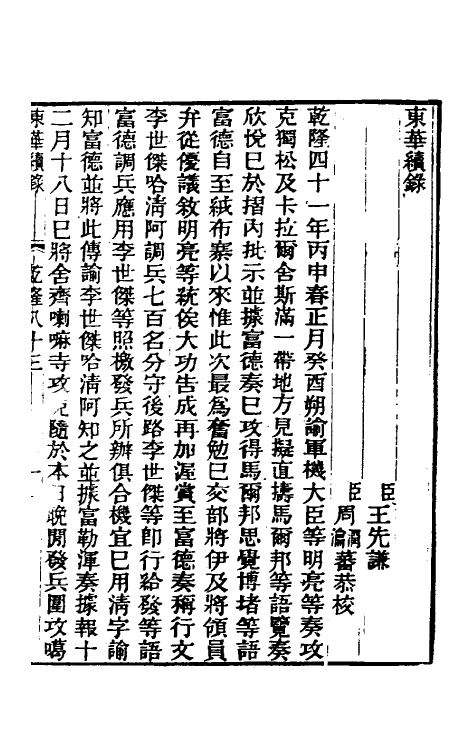 東華續錄
臣王先謙
臣周蕃恭校
乾隆四十一年丙申春正月癸酉朔諭軍機大臣等明亮等奏攻
克獨松及卡拉爾舍斯滿一帶地方見擬直擣馬爾邦等語覽奏
欣悅已於摺內批示並據富德奏已攻得馬爾邦思覺博堵等語
富德自至絨布寨以來惟此次最爲奮勉已交部將伊及將領員
弁從優議敘明亮等統俟大功告成再加渥賞至富德奏稱行文
李世傑哈清阿調兵七百名分守後路李世傑等卽行給發等語
富德調兵應用李世傑等照檄發兵所辦俱合機宜已用清字諭
知富德並將此傳諭李世傑哈清阿知之並據富勒渾奏據報十
二月十八日已將舍齊喇嘛寺攻克隨於本日晚間發兵圍攻噶
東華續錄 乾隆八十三 一